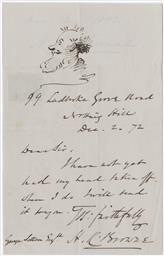 99 Ladbroke Grove Road
Notting Hill
Dec. 2. 72
Dear Sir.
I have not yet
had my head taken off.
when I do I will send
it you. Yrs faithfully
H. K. Browne
George Sutton Esqre